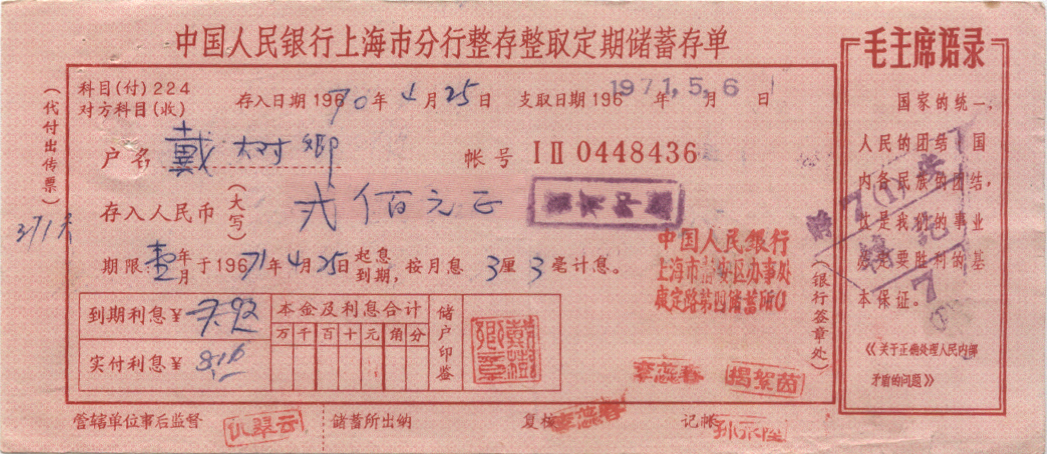 中国人民银行上海市分行整存整取定期储蓄存单
(代付出传票)
371天
科目(付)224
对方科目(收)
存入日期196 70年4月25日 支取日期196 年 月 日
1971.5.6
户名 戴树卿 帐号 I II 0448436
存入人民币(大写) 弍佰元正
期限壹年月于19671年4月25日起息到期,按月息3厘3毫计息。
中国人民银行
上海市静安区办事处
康定路第四储蓄所
(银行签章处)
到期利息¥ 7.92
本金及利息合计
万 千 百 十 元 角 分
实付利息¥ 8.16
储户印鉴
戴树卿章
李蕊春
揭絮茵
管辖单位事后监督 仇翠云 储蓄所出纳 复核 李蕊春 记帐 孙永隆
毛主席语录
国家的统一,
人民的团结,国
内各民族的团结,
这是我们的事业
必定要胜利的基
本保证。
《关于正确处理人民内部
矛盾的问题》